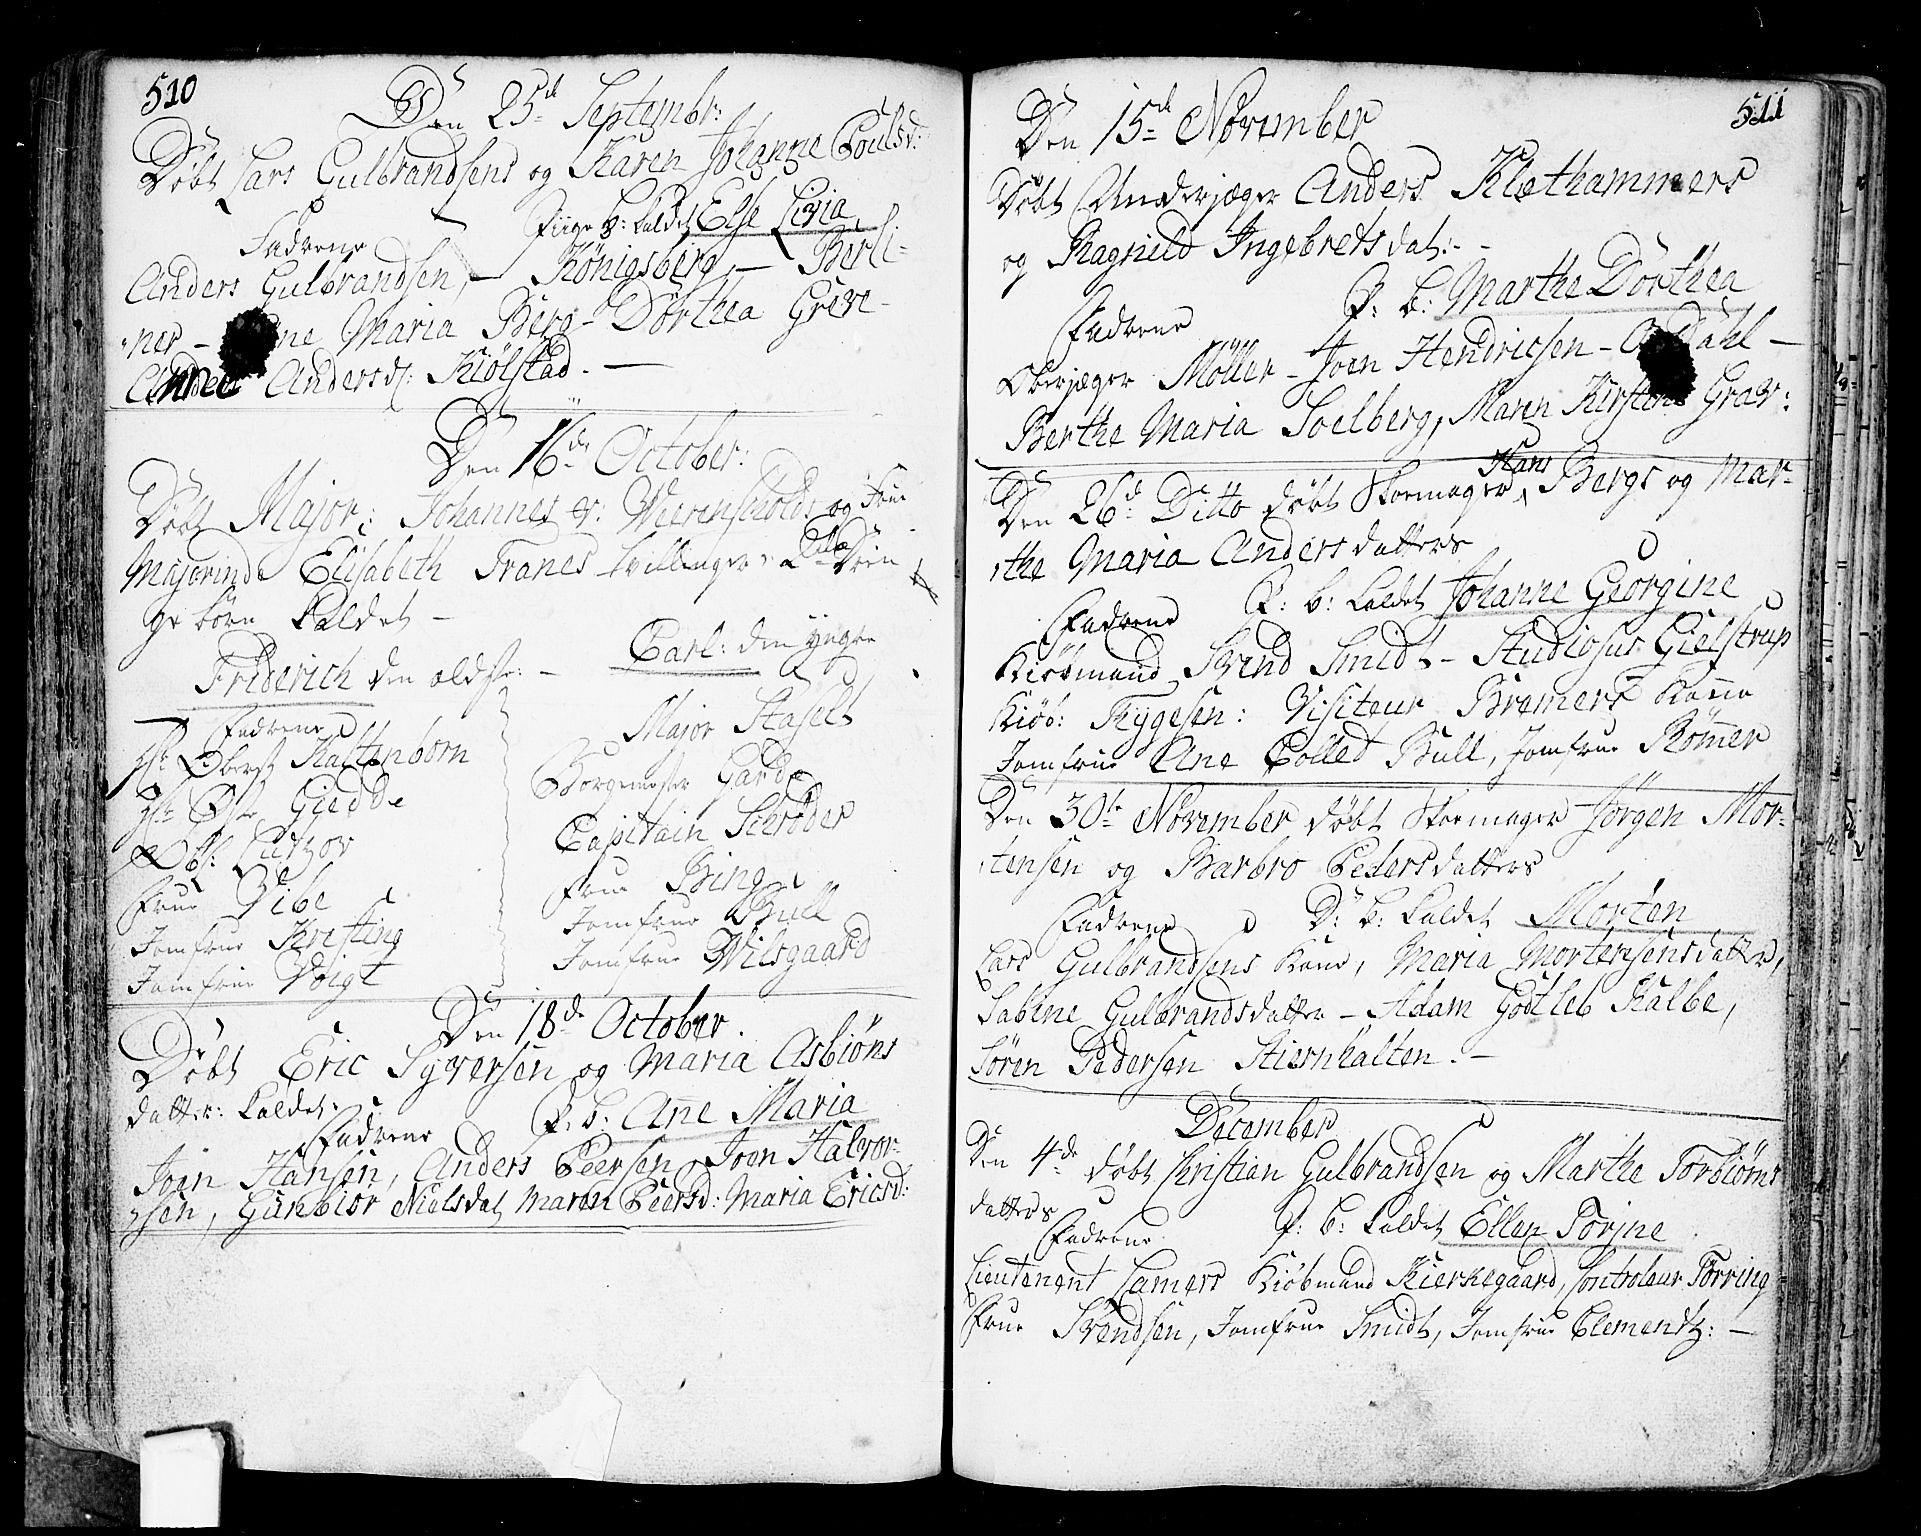 510
Den 25de Septembr:
Døbt Lars Gulbrandsens og Karen Johanne Poulsd:
Piige b: kaldet Else Livia
Fadrene
Anders Gulbrandsen, - Königsberg, - Berli-
ner - ne Maria Berg - Dorthea Greve-
Andersd: Kiølstad. -
Den 16de October:
Døbt Major: Johannes v: Weerenskiolds og Frue
Majorinde Elisabeth Franes tvillinger 2de Dren-
ge børn kaldet -
Friderich den ældste: -
Carl: den yngre
Fadrene
Hr: Oberst Kaltenborn
Giedde
Lützov
Frue Vibe
Jomfrue Kristing
Jomfrue Voigt
Major Stafelt
Borgemester Garde
Capitain Schrøder
Frue Bing
Jomfrue Bull
Jomfrue Wilsgaard
Den 18de October.
Døbt Eric Syversen og Maria Asbiøns
datter: kaldet:
P. b: Ane Maria
Fadrene
Joen Hansen, Anders Peersen, Joen Halvor-
sen, Gunbior Nielsdat Maren Peersd: Maria Ericsd:
511
Den 15de November
Døbt Underjæger Anders Klethammers
og Ragnild Ingebretsdat: -
P: b: Marthe Dorthea
Fadrene
Oberjæger Möller - Joen Hendricsen - Dahl -
Berthe Maria Soelberg, Maren Kirstine Grav:
Den 26d: Ditto døbt Skoemager Hans Bergs og Mar-
the Maria Anders datters
P: b: kaldet Johanne Georgine
Fadrene
Kiøbmand Svend Smidt - Studiosus Gielstrup
Kiøb: Thygesen: Visiteur Bremers Kone
Jomfrue Ane Collet Bull, Jomfrue Rømer
Den 30te November døbt Skoemager Jørgen Mor-
tensen og Barbro Peders datters
D: b: kaldet Morten
Fadrene
Lars Gulbrandsens Kone, Maria Mortensens datter,
Sabine Gulbrandsdatter - Adam Godtleb Kalbe,
Søren Pedersen Stiernhalten. -
December
Den 4de døbt Christian Gulbrandsen og Marthe Torbiørns
datters
P: b: kaldet Ellen Torine
Fadrene
Lieutenent Lamers Kiøbmand Kierkegaard, Controleur Torring
Frue Svendsen, Jomfrue Smidt, Jomfrue Clementz: -